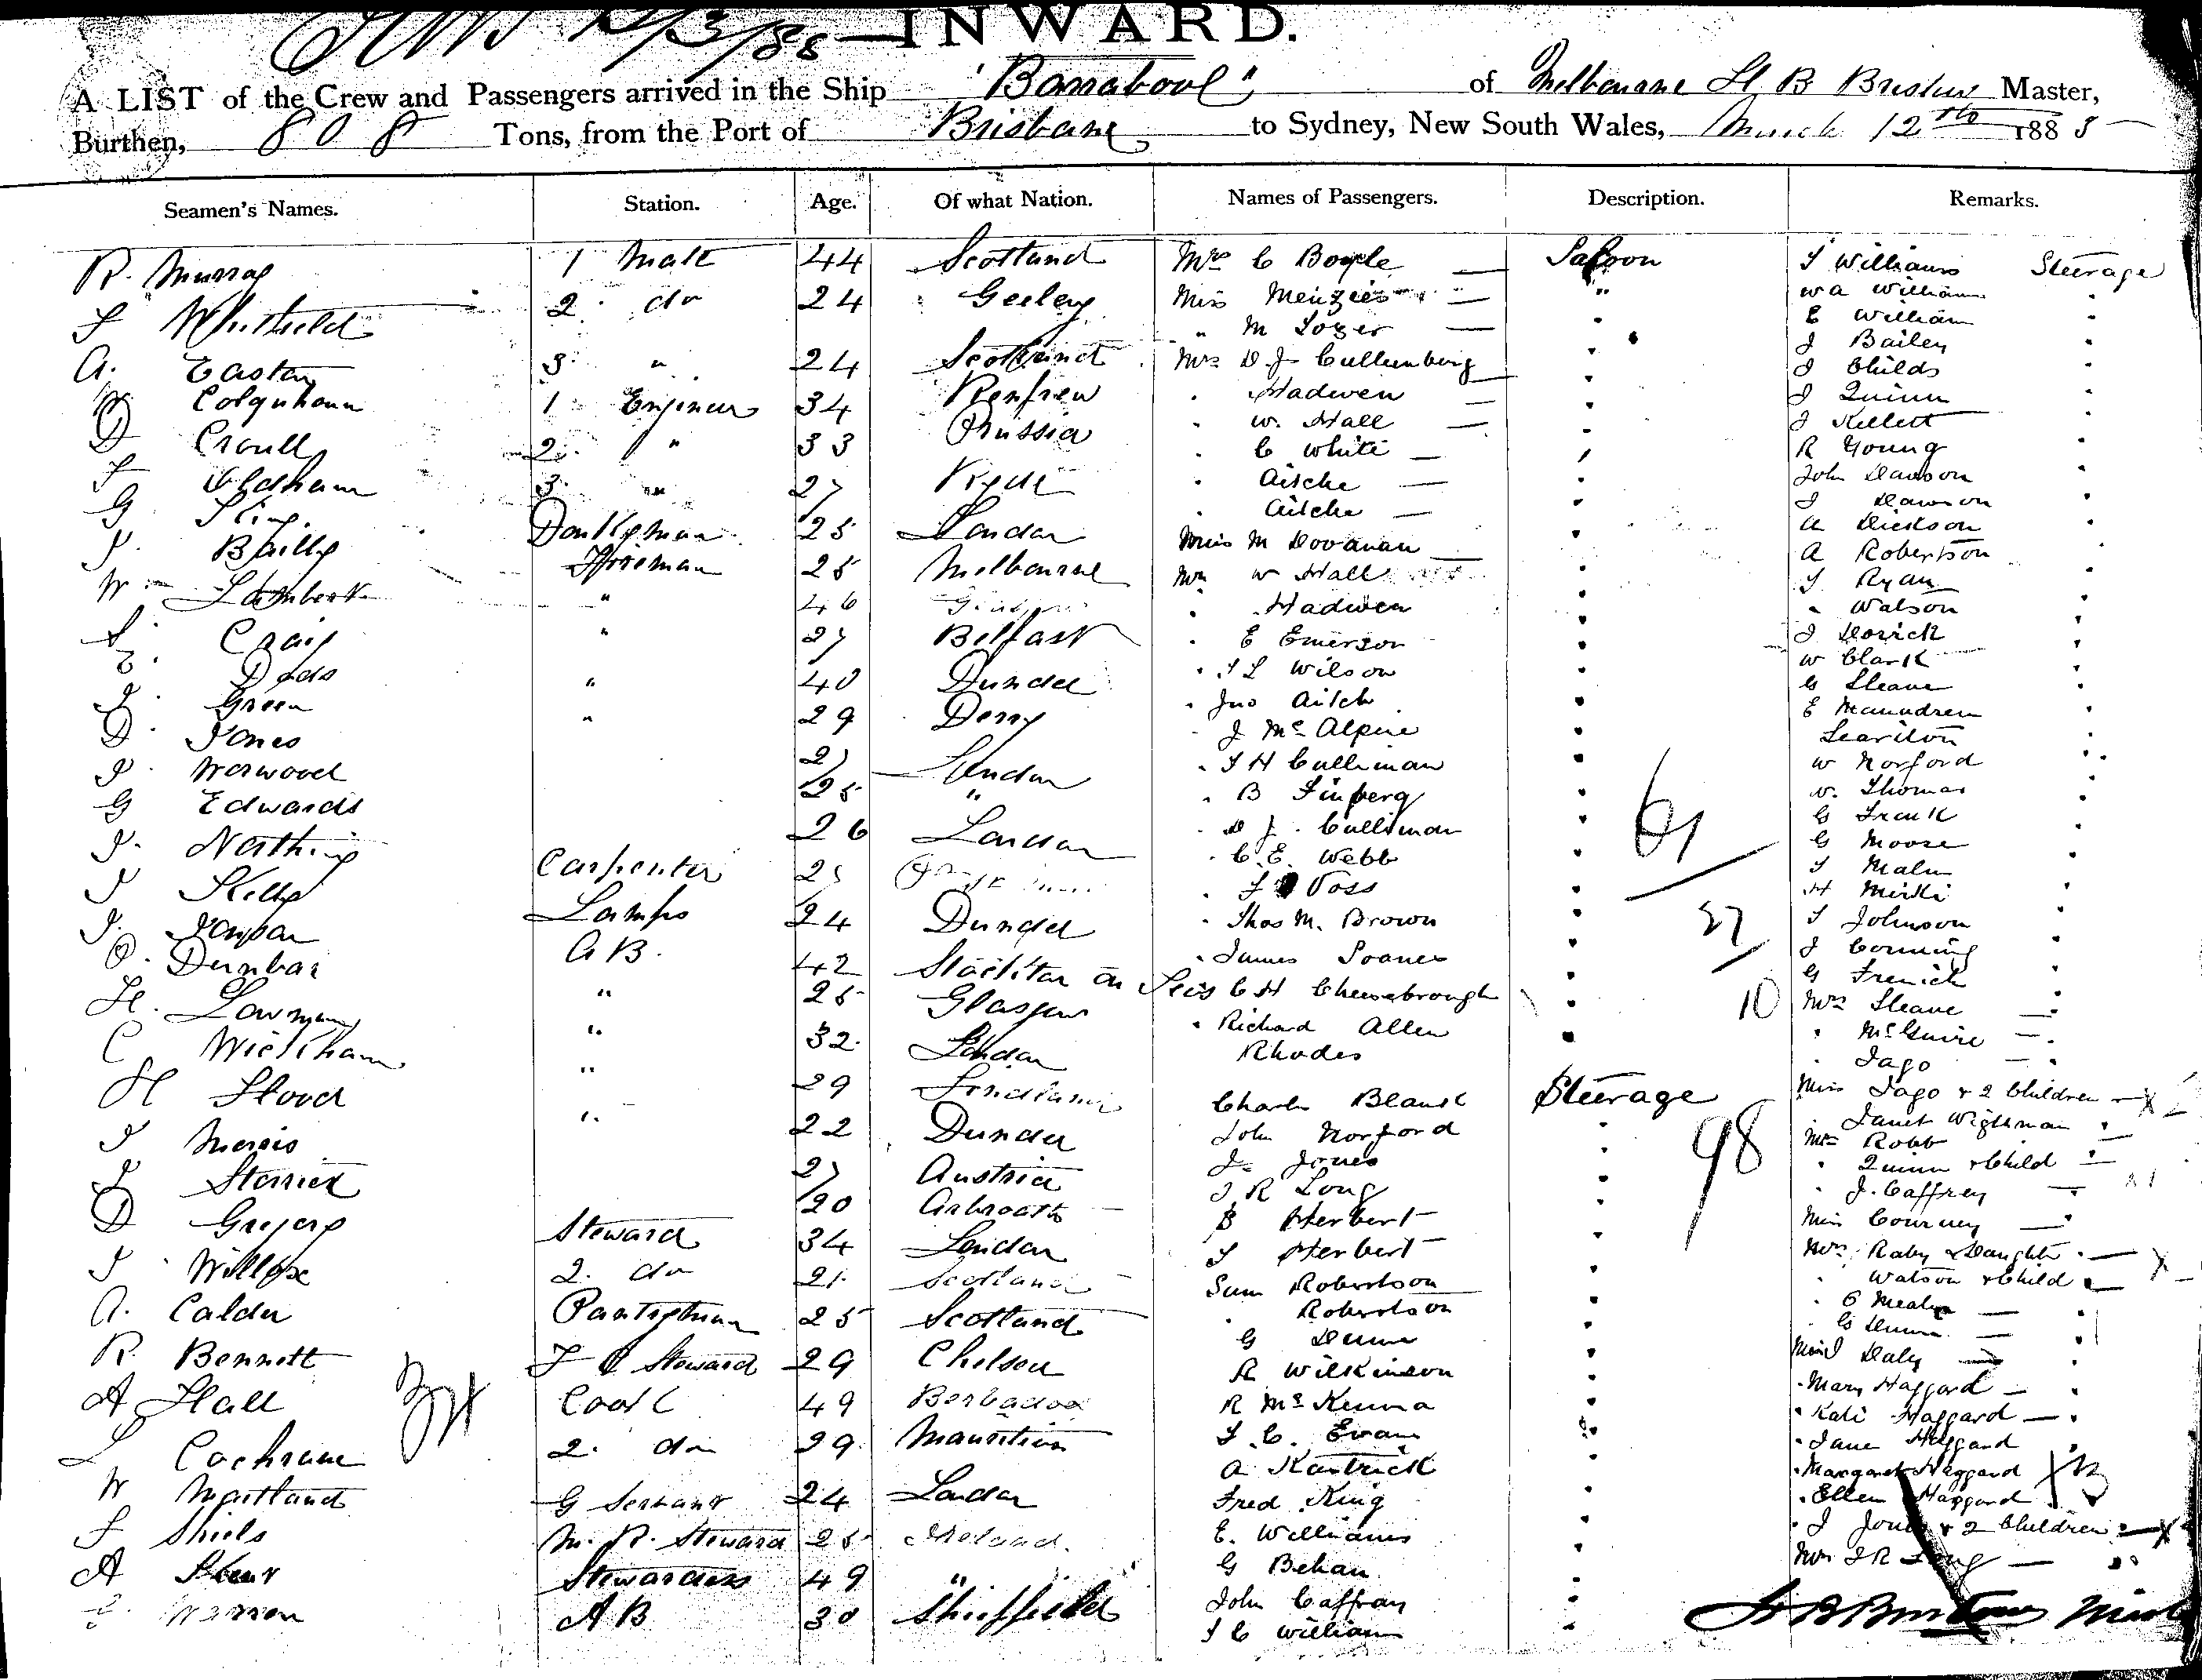 12/3/88 INWARD.
A LIST of the Crew and Passengers arrived in the Ship "Barrabool" of Melbourne H B Bristow Master,
Burthen, 808 Tons, from the Port of Brisbane to Sydney, New South Wales, March 12th 1888
Seamen's Names. Station. Age. Of what Nation. Names of Passengers. Description. Remarks.
R. Murray 1 Mate 44 Scotland
Whitfield 2 do 24
A. Easton 3 " 24 Scotland
Colquhoun 1 Engineer 34 Renfrew
D Croull 2 " 33 Prussia
Oldham 3 " 27 Ryde
G King Donkyman 25 London
J. Bailly Fireman 25 Melbourne
W Lambert " 46
Craig " 27 Belfast
Dods " 40 Dundee
J. Green " 29 Derry
D. Jones 27 London
J. Warwood 25 "
G Edwards 26 London
J. Nothing Carpenter 25
J Kelly Lamps 24 Dundee
J. AB. 42 Stockton on Tees
O. Dunbar " 25 Glasgow
H. Lowman " 32 London
C Wickham " 29
H Hood " 22 Dundee
J Morris 27 Austria
J Sterrick 20 Arbroath
D Gregory Steward 34 London
J Willcox 2. do 21 Scotland
A. Calder Pantryman 25 Scotland
R. Bennett F C Steward 29 Chelsea
A Hall Cook 49 Barbados
L Cochrane 2. do 29 Mauritius
W Maitland G Servant 24 London
F Shiels M. R. Steward 25 Ireland.
A Stewardess 49 "
Warren AB 30 Sheffield
Mrs C Boyle — Saloon
Miss Menzies — "
" M Lozer —
Mrs D J Cullemberg
" Hadwen —
" W. Hall —
" C White —
" Aitche —
" Aitche —
Miss M Dovanan
Mr W Hall
" Hadwen
" E Emerson
" J L Wilson
" Jno Aitch
" J McAlpine
" J H Culliman
" B Finberg
" D J. Culliman
" C. E. Webb
" J Voss
" Thos M. Brown
" James Soanes
" C H Cheesebrough
" Richard Allen
Rhodes
Charles Blank Steerage
John Norford
J. Jones
J R Long
B Herbert
J Herbert
Sam Robertson
" Robertson
G Dunn
R Wilkinson
R McKenna
J. C. Evans
A Kartrick
Fred King
E. Williams
G Behan
John Caffray
J C William
61
37
10
98
J Williams Steerage
W A William
E William
J Bailey
J Childs
J Quinn
J Kellett
R Young
John Dawson
J Dawson
A Dickson
A Robertson
J Ryan
" Watson
J Dorick
W Clark
G Sleave
E Maundren
W Norford
W. Thomas
G Frank
G Moore
J Malm
H Mirki
J Johnson
J Corning
G French
Mrs Sleave —
" McGuire —
" Jago —
Miss Jago & 2 Children —
" Janet Wightman
Mrs Robb —
" Quinn & Child —
" J. Caffrey —
Miss Courney —
Mrs Raby & Daughter —
" Watson & Child —
" G Dunn —
Miss Daly —
" Mary Haggard —
" Kate Haggard —
" Jane Haggard
" Margaret Haggard
" Ellen Haggard
" J Jones & 2 Children —
Mrs J R Long —
H B Bristow Master